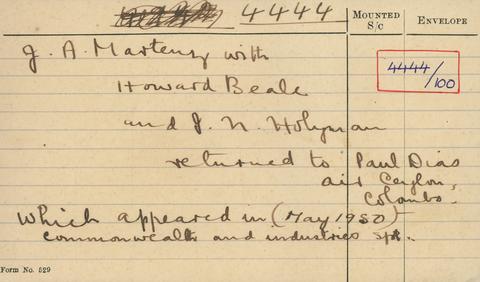 4444
MOUNTED S/C
ENVELOPE
4444/100
J. A. Martensz with
Howard Beale
and J. N. Holyman
returned to Paul Dias
air Ceylon,
Colombo.
which appeared in (May 1950)
commonwealth and industries
Form No. 529